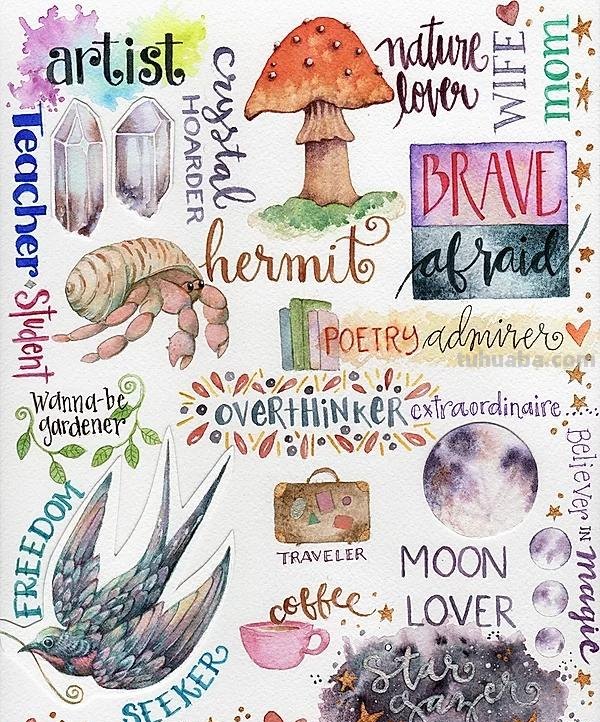 artist
crystal
HOARDER
nature
lover
WIFE
mom
Teacher
Student
BRAVE
afraid
hermit
POETRY admirer
tuhuaba.com
wanna-be
gardener
OVERTHINKER extraordinaire.....
BELIEVER IN magic
FREEDOM
SEEKER
TRAVELER
MOON
LOVER
coffee
star
gazer